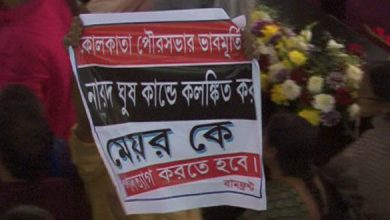 কোলকাতা পৌরসভার ভাবমূর্তি
নারদ ঘুষ কান্ডে কলঙ্কিত
মেয়র কে
করতে হবে।
বামফ্রন্ট